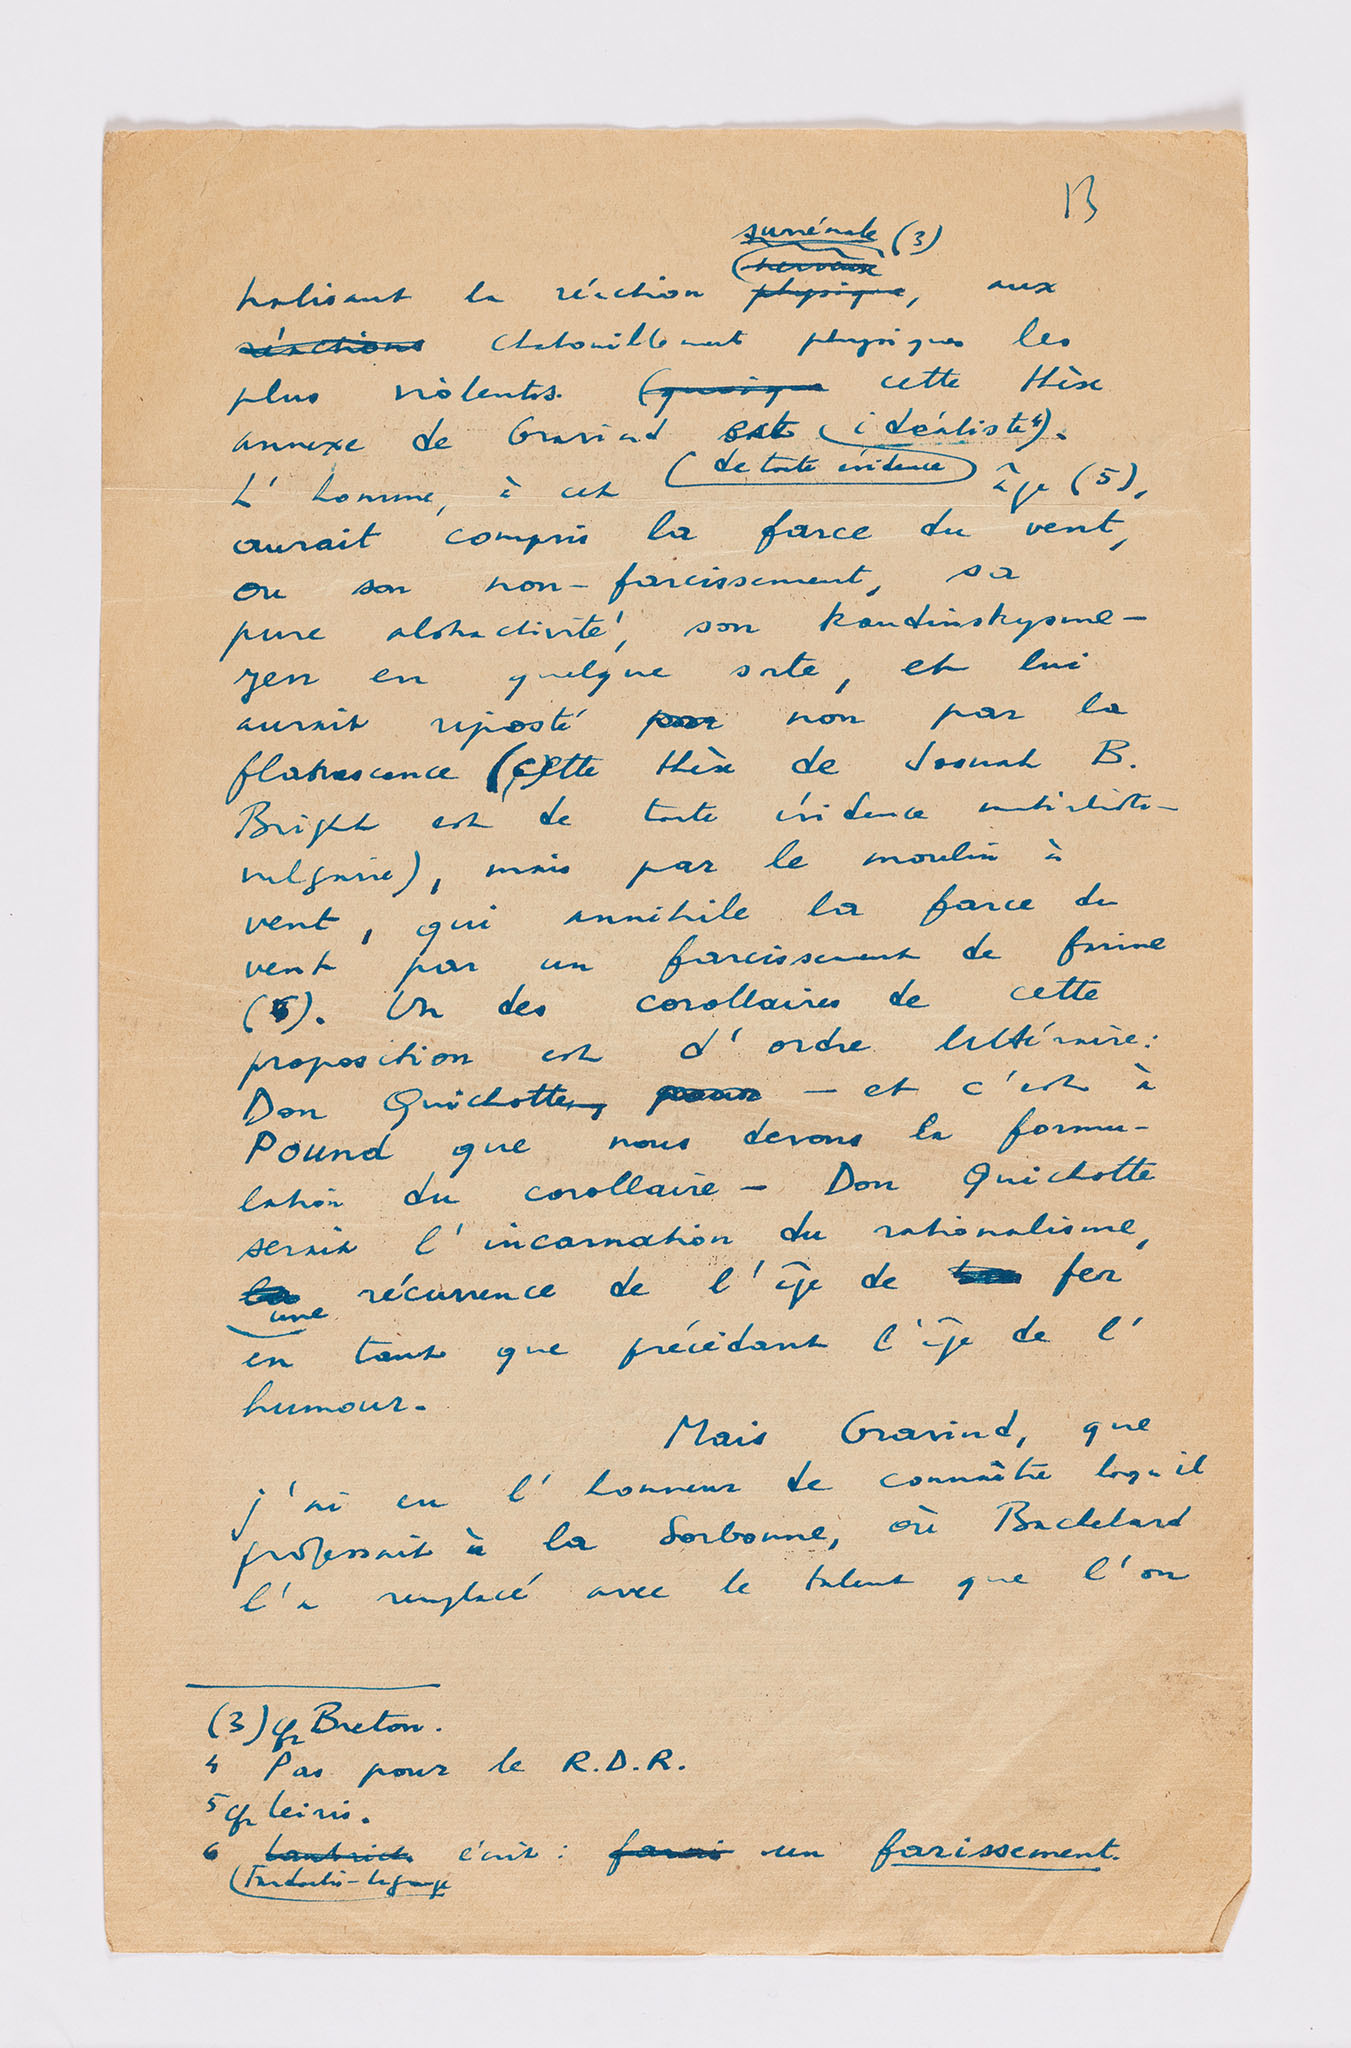 13
surrénale (3)
nerveuse
tralisant la réaction physique, aux
réactions chatouillement physiques les
plus violents. (quoique cette thèse
annexe de Gravind est idéaliste 4).
de toute évidence
L'homme, à cet âge (5),
aurait compris la farce du vent,
ou son non-farcissement, sa
pure abstractivité, son kandinskysme-
zen en quelque sorte, et lui
aurait riposté par non par la
flatrescence (cette thèse de Josuah B.
Bright est de toute évidence antiartisto-
vulgaire), mais par le moulin à
vent, qui annihile la farce du
vent par un farcissement de farine
(6). Un des corollaires de cette
proposition est d'ordre littéraire:
Don Quichotte, pour — et c'est à
Pound que nous devons la formu-
lation du corollaire — Don Quichotte
serait l'incarnation du rationalisme,
la récurrence de l'âge de fer
une
en tant que précédant l'âge de l'
humour.
Mais Gravind, que
j'ai eu l'honneur de connaître lorsqu'il
professait à la Sorbonne, où Bachelard
l'a remplacé avec le talent que l'on
(3) cfr Breton.
4 Pas pour le R.D.R.
5 cfr Leiris.
6 écrit: farci un farissement.